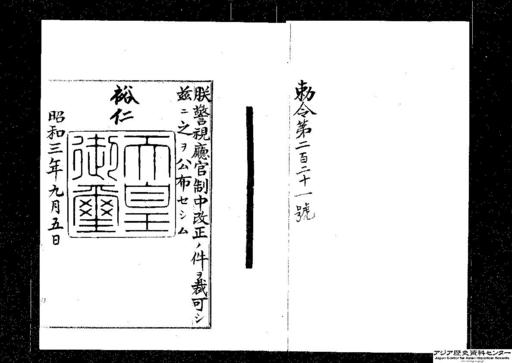 勅令第二百二十一號
朕警視廳官制中改正ノ件ヲ裁可シ
茲ニ之ヲ公布セシム
裕仁
天皇
御璽
昭和三年九月五日
アジア歴史資料センター
Japan Center for Asian Historical Records